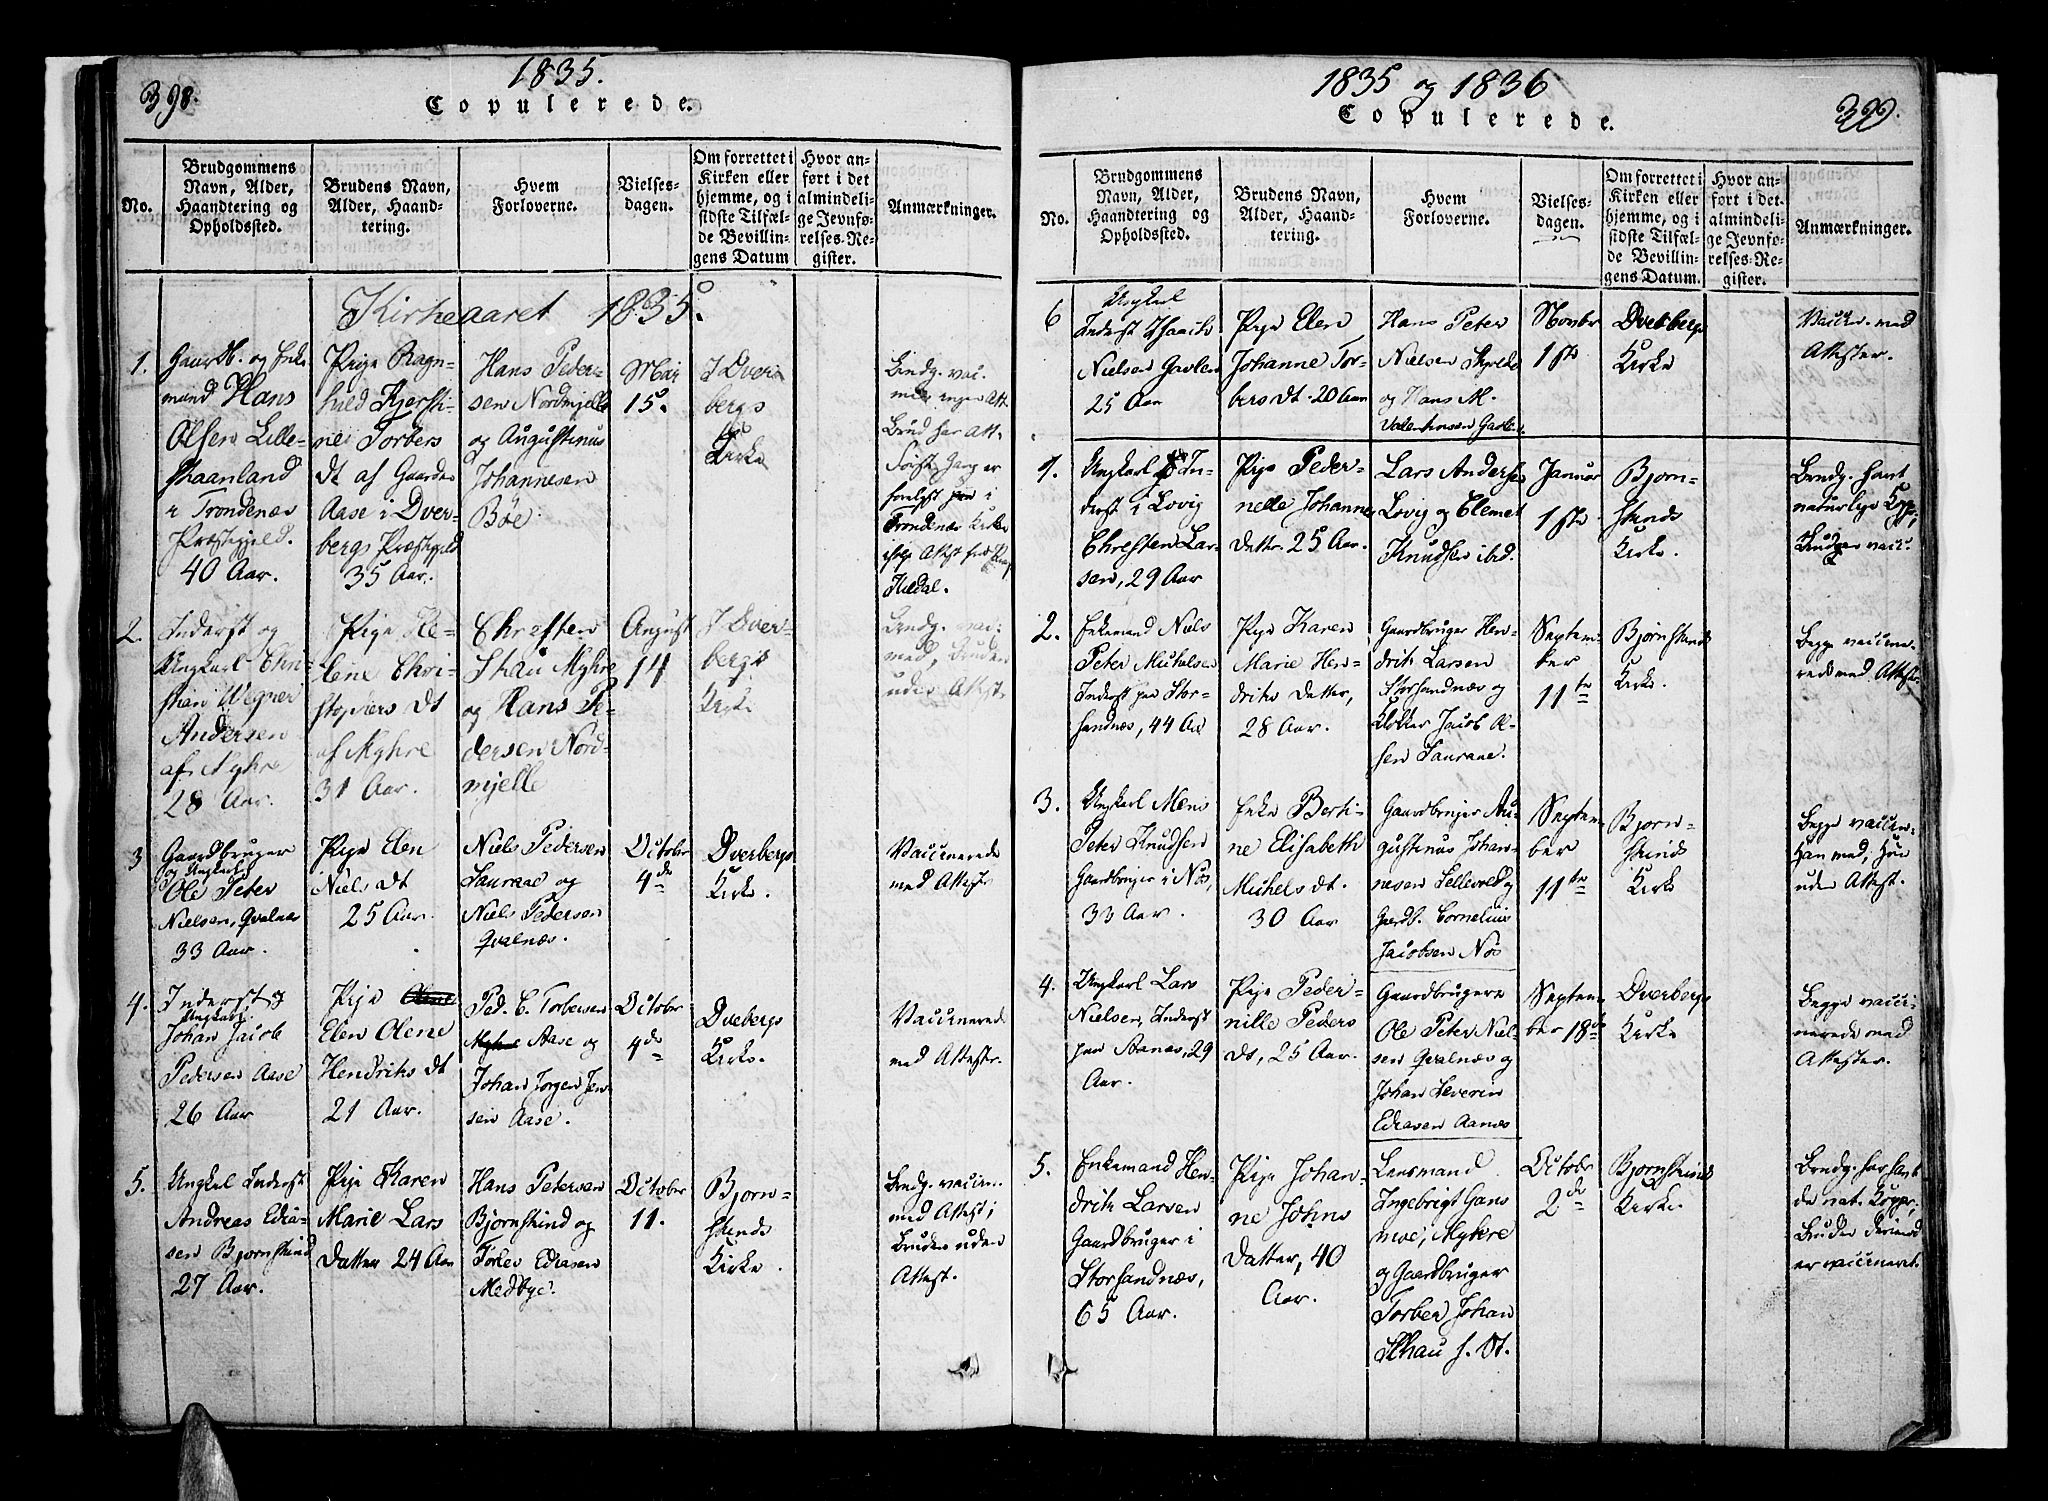 398.
1835.
Copulerede.
No.
Brudgommens
Navn, Alder,
Haandtering og
Opholdssted.
Brudens Navn,
Alder, Haand-
tering.
Hvem
Forloverne.
Vielses-
dagen.
Om forrettet i
Kirken eller
hjemme, og i
sidste Tilfæl-
de Bevillin-
gens Datum
Hvor an-
ført i det
almindeli-
ge Jevnfø-
relses-Re-
gister.
Anmærkninger.
Kirkeaaret 1835.
1.
Gaardb. og Enke
mand Hans
Olsen Lille-
Haanland
i Trondenæs
Præstegjeld.
40 Aar.
Pige Ragn-
hild Kjersti-
ne Torbers
Dt af Gaarden
Aase i Dver-
bergs Præstegjeld
35 Aar.
Hans Peder-
sen Nordmjelle
og Augustinus
Johannesen
Böe.
Mai
15.
I Dver
bergs
Kirke
Brudg. vac.
men ingen Att
Brud har Att.
Første Gang er
forlyst i
Trondenæs Kirke
Attest fra
2.
Inderst og
Ungkarl Chri-
stian Wegner
Andersen
af Myhre
28 Aar.
Pige He-
lene Chri-
stophers Dt
af Myhre
31 Aar.
Christen
Schau Myhre
og Hans Pe-
dersen Nord-
mjelle
August
14
I Dver-
bergs
Kirke
Brudg. vac:
med, Bruden
uden Attest.
3
Gaardbruger
og Ungkarl
Ole Peter
Nielsen, Qvalnæs
33 Aar.
Pige Elen
Niels Dt
25 Aar.
Niels Pedersen
Saurane og
Niels Pedersen
Qvalnæs.
October
4de
Dverbergs
Kirke.
Vaccinerede
med Attestr
4.
Inderst og
Ungkarl
Johan Jacob
Pedersen Aase
26 Aar
Pige
Elen Olene
Hendriks Dt
21 Aar.
Ped. C. Torbersen
Myhre Aase og
Johan Jørgen Jen
sen Aase.
October
4de
Dvebergs
Kirke.
Vaccinerede
med Attestr.
5.
Ungkarl Inderst
Andreas Edia-
sen Bjørnskind
27 Aar.
Pige Karen
Marie Lars
Datter 24 Aar
Hans Petersen
Bjørnskind og
Tories Ediasen
Medbye.
October
11.
Bjørn-
skinds
Kirke.
Brudg. vaccin.
med Attest;
Bruden uden
Attest.
1835 og 1836
Copulerede.
399.
No.
Brudgommens
Navn, Alder,
Haandtering og
Opholdssted.
Brudens Navn,
Alder, Haand-
tering.
Hvem
Forloverne.
Vielses-
dagen.
Om forrettet i
Kirken eller
hjemme, og i
sidste Tilfæl-
de Bevillin-
gens Datum.
Hvor an-
ført i det
almindeli-
ge Jevnfø-
relses-Re-
gister.
Anmærkninger.
6
Ungkarl
Inderst Isaach
Nielsen Gavlen
25 Aar
Pige Elen
Johanne Tor-
bers Dt. 20 Aar
Hans Peter
Nielsen
og Hans M.
Valentinsen Gavlen
Novbr
1ste
Dverbergs
Kirke
Vaccin. med
Attester.
1.
Ungkarl In-
derst i Lovig
Christen Lar-
sen, 29 Aar
Pige Peder-
nelle Johanne
Dattr. 25 Aar.
Lars Andersen
Lovig og Clemet
Knudsen ibid.
Januar
1ste
Bjørn-
skinds
Kirke.
Brudg. havt
naturlige Kopper,
Bruden vacc.
2.
Enkemand Niels
Peter Michelsen
Inderst paa Stor-
sandnæs, 44 Aar
Pige Karen
Marie Hen-
driks Datter,
28 Aar.
Gaardbruger Hen-
drik Larsen
Storsandnæs og
Klokker Jacob Ol-
sen Saurane.
Septem-
ber
11te
Bjørnskinds
Kirke.
Begge vaccine-
rede med Attester.
3.
Ungkarl Mons
Peter Knudsen
Gaardbruger i Nøs,
33 Aar.
Enke Berti-
ne Elisabeth
Michels Dt.
30 Aar
Gaardbruger Au-
gustinus Johan-
nesen Sellevold og
Gaardb. Cornelius
Jacobsen Nøs
Septem-
ber
11te
Bjørn-
skinds
Kirke
Begge vaccin-
Han med, Hun
uden Attest.
4.
Ungkarl Lars
Nielsen, Inderst
paa Aanæs, 29
Aar.
Pige Peder-
nille Peders
Dt, 25 Aar.
Gaardbrugere
Ole Peter Niel-
sen Qvalnæs og
Johan Severin
Ediasen Aanæs
Septem-
ber 18de
Dverbergs
Kirke
Begge vacci-
nerede med
Attester.
5.
Enkemand Hen-
drik Larsen
Gaardbruger i
Storsandnæs,
65 Aar.
Pige Johan-
ne Johns
Datter, 40
Aar.
Lensmand
Ingebrigt Hans
moe, Myhre
og Gaardbruger
Torber Johan
Schau s. St.
Octobr
2de
Bjørnskinds
Kirke.
Brudg. har havt
de nat. Kopper,
Bruden derimod
er vaccineret.